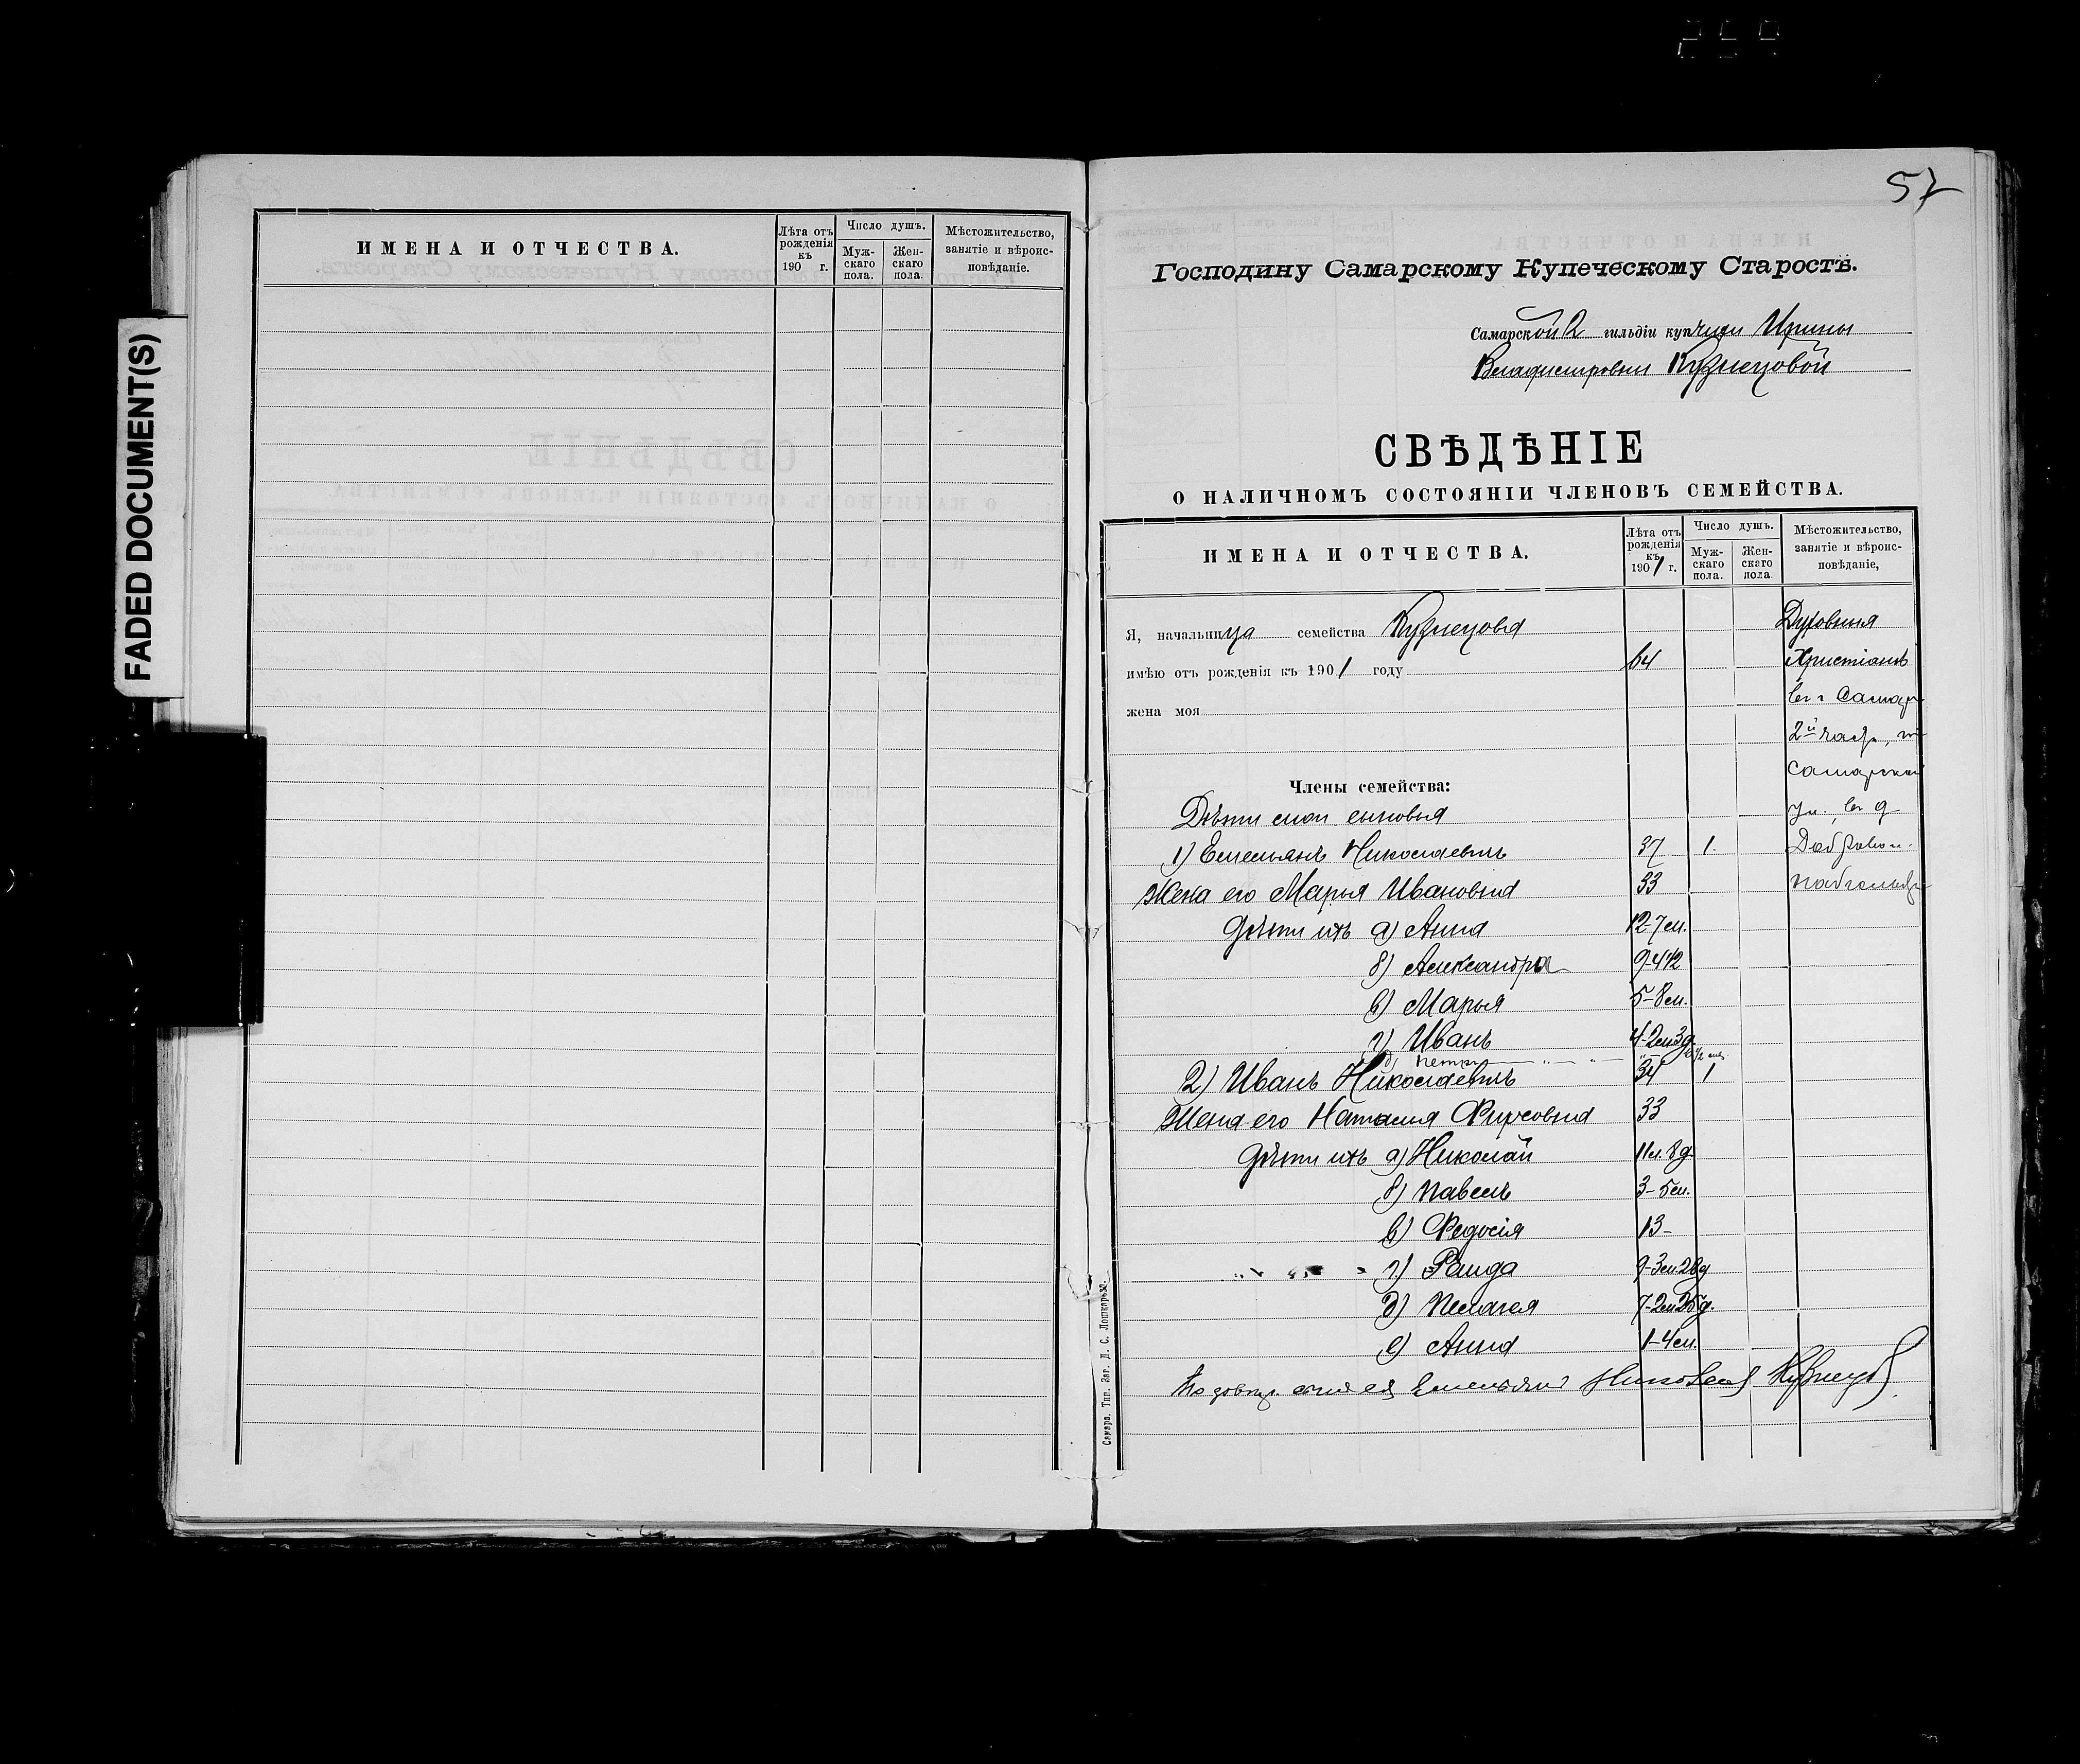 FADED DOCUMENT(S)
ИМЕНА И ОТЧЕСТВА.
Лѣта отъ рожденія къ 190 г.
Число душъ.
Мужскаго пола.
Женскаго пола.
Мѣстожительство, занятіе и вѣроисповѣданіе.
57
Господину Самарскому Купеческому Старостѣ.
Самарской 2 гильдіи купчихи Ирины
Кузнецовой
СВѢДѢНІЕ
О НАЛИЧНОМЪ СОСТОЯНІИ ЧЛЕНОВЪ СЕМЕЙСТВА.
ИМЕНА И ОТЧЕСТВА.
Лѣта отъ рожденія къ 1901 г.
Число душъ.
Мужскаго пола.
Женскаго пола.
Мѣстожительство, занятіе и вѣроисповѣданіе,
Я, начальница семейства Кузнецова Духовныя
имѣю отъ рожденія къ 1901 году 64 Христіанъ
жена моя въ г Самар
2й част,
Самарской
Члены семейства:
Дѣти мои сыновья ул., въ д
1) Емельянъ Николаевичъ 37 1.
Жена его Марья Ивановна 33
дѣти ихъ а) Анна 12-7м.
б) Александра 9-4 1/2
в) Марья 5-8м.
г) Иванъ 4-2м3д
д) Петръ
2) Иванъ Николаевичъ 34 1
Жена его Наталья Фирсовна 33
дѣти ихъ а) Николай 11м.8д.
б) Павелъ 3-5м.
в) Федосія 13-
г) Раида 9-3м.28д
д) Пелагея 7-2м25д.
е) Анна 1-4м.
По довѣр. сынъ ея Емельянъ Николаевъ Кузнецовъ
Самара. Тип. Заг. Д. С. Лошкарью.